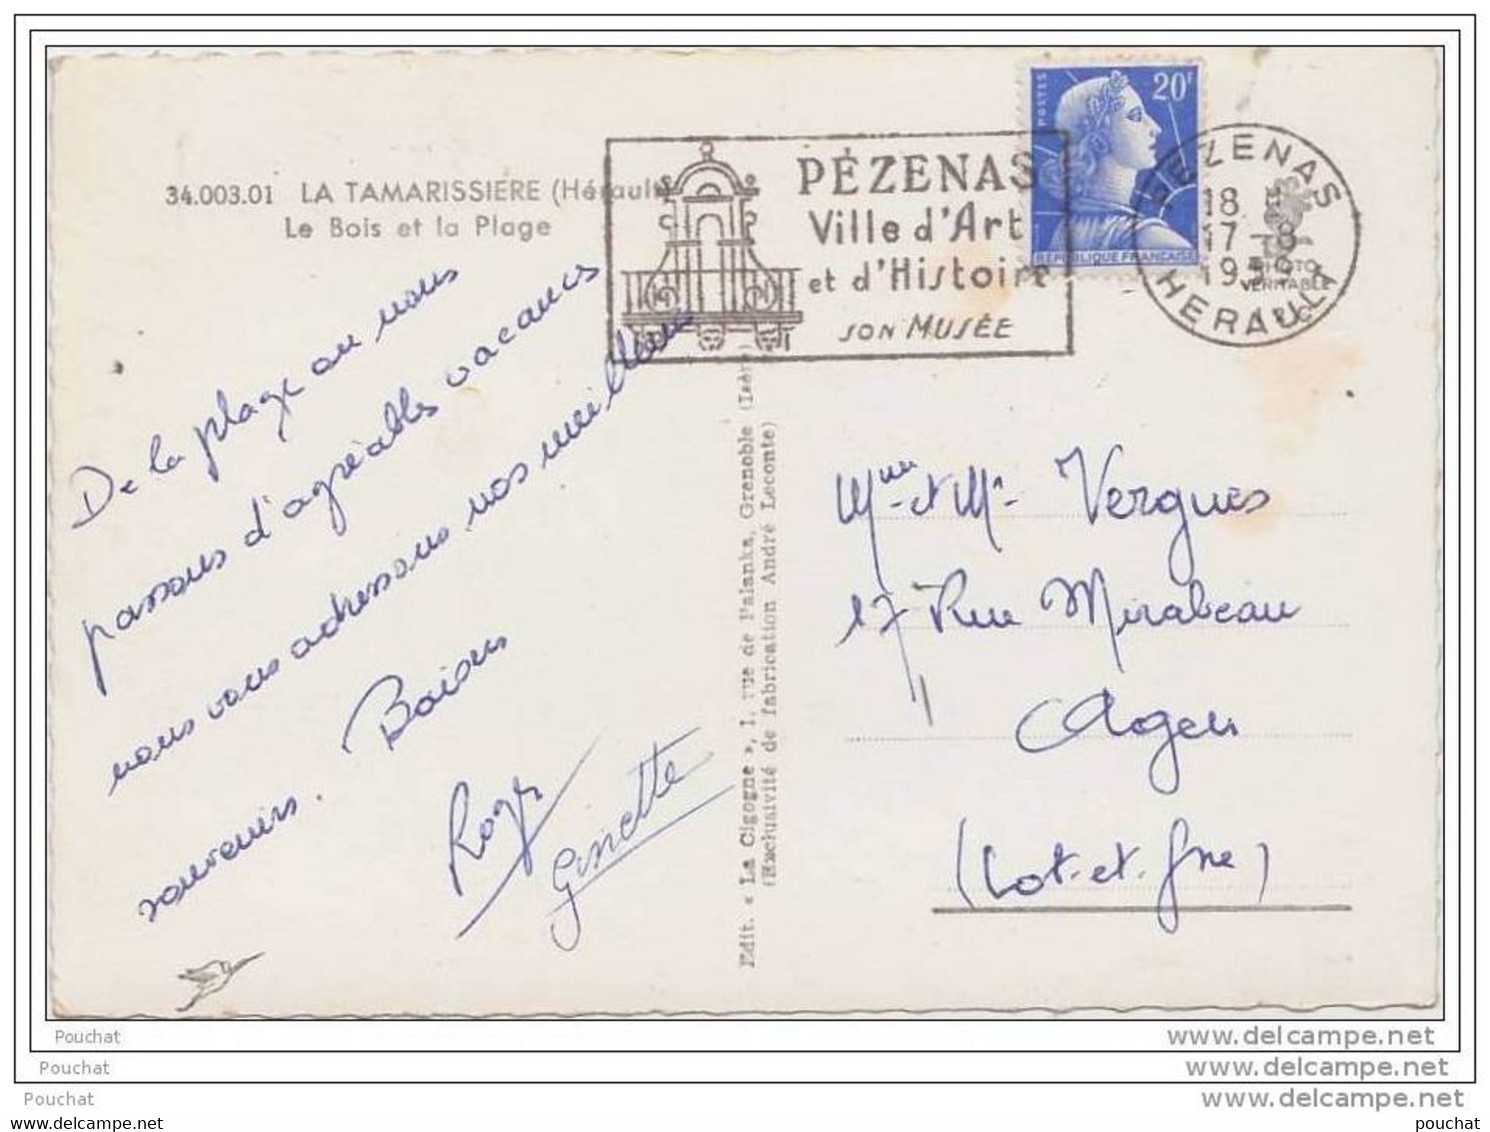 34.003.01 LA TAMARISSIERE (Hérault)
Le Bois et la Plage
PÉZENAS
Ville d'Art
et d'Histoire
SON MUSÉE
POSTES
20F
REPUBLIQUE FRANÇAISE
PEZENAS
18 H
17 - 8
19
HERAULT
PHOTO
VERITABLE
De la plage où nous
passons d'agréables vacances
nous vous adressons nos meilleurs
souvenirs. Baisers
Roger
Ginette
Edit. « La Cigogne », 1, rue de Palanka, Grenoble (Isère)
(Exclusivité de fabrication André Leconte)
Mme et Mr Vergues
17 Rue Mirabeau
Agen
(Lot-et-Gne)
Pouchat
www.delcampe.net
Pouchat
www.delcampe.net
Pouchat
www.delcampe.net
www.delcampe.net
pouchat